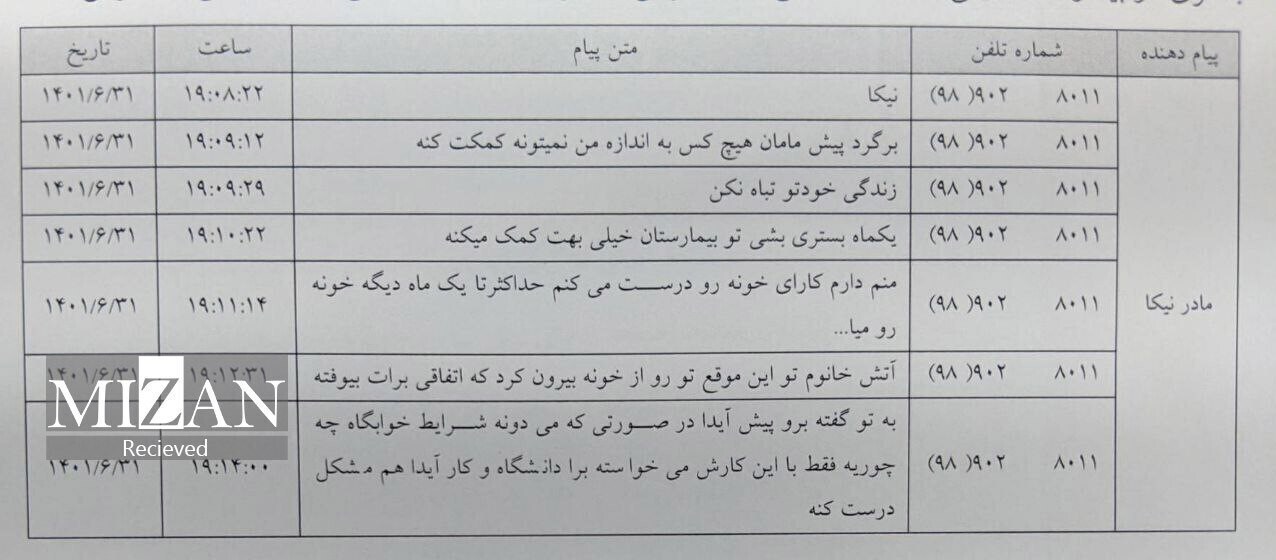 پیام دهنده	شماره تلفن	متن پیام	ساعت	تاریخ
مادر نیکا
۸۰۱۱	(۹۸ )۹۰۲	نیکا	۱۹:۰۸:۲۲	۱۴۰۱/۶/۳۱
۸۰۱۱	(۹۸ )۹۰۲	برگرد پیش مامان هیچ کس به اندازه من نمیتونه کمکت کنه	۱۹:۰۹:۱۲	۱۴۰۱/۶/۳۱
۸۰۱۱	(۹۸ )۹۰۲	زندگی خودتو تباه نکن	۱۹:۰۹:۲۹	۱۴۰۱/۶/۳۱
۸۰۱۱	(۹۸ )۹۰۲	یکماه بستری بشی تو بیمارستان خیلی بهت کمک میکنه	۱۹:۱۰:۲۲	۱۴۰۱/۶/۳۱
۸۰۱۱	(۹۸ )۹۰۲	منم دارم کارای خونه رو درست می کنم حداکثرتا یک ماه دیگه خونه	۱۹:۱۱:۱۴	۱۴۰۱/۶/۳۱
رو میا...
۸۰۱۱	(۹۸ )۹۰۲	آتش خانوم تو این موقع تو رو از خونه بیرون کرد که اتفاقی برات بیوفته	۱۹:۱۲:۳۱	۱۴۰۱/۶/۳۱
به تو گفته برو پیش آیدا در صورتی که می دونه شرایط خوابگاه چه
۸۰۱۱	(۹۸ )۹۰۲	جوریه فقط با این کارش می خواسته برا دانشگاه و کار آیدا هم مشکل	۱۹:۱۴:۰۰	۱۴۰۱/۶/۳۱
درست کنه
MIZAN
Recieved